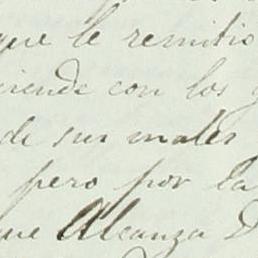 que le remitio
ciende con los
de sus males
pero por la
que Alcanza